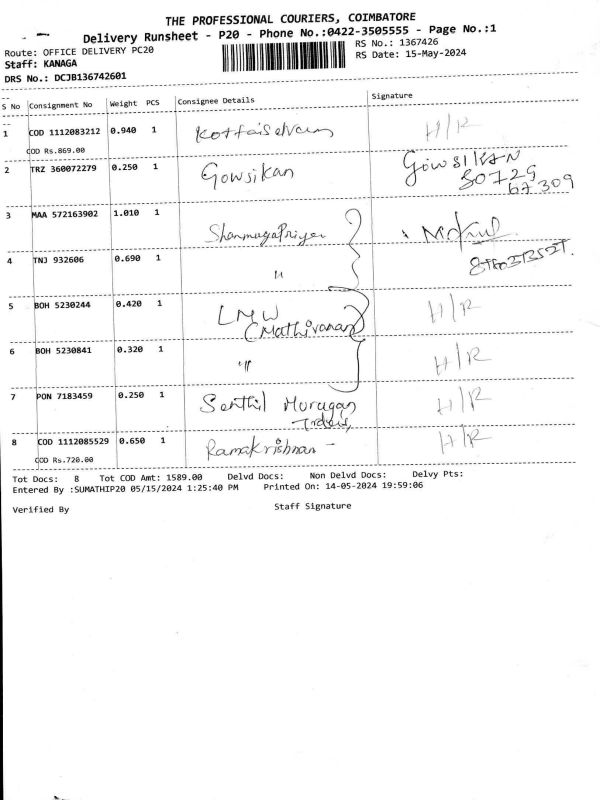 THE PROFESSIONAL COURIERS, COIMBATORE
Delivery Runsheet - P20 - Phone No.:0422-3505555 - Page No.:1
Route: OFFICE DELIVERY PC20
RS No.: 1367426
Staff: KANAGA
RS Date: 15-May-2024
DRS No.: DCJB136742601
S No Consignment No Weight PCS Consignee Details Signature
1 COD 1112083212 0.940 1 Kottaiselvam H/R
COD Rs.869.00
2 TRZ 360072279 0.250 1 Gowsikan GOWSIKAN
80729
67309
3 MAA 572163902 1.010 1 ShanmugaPriya
4 TNJ 932606 0.690 1 "
5 BOH 5230244 0.420 1 LMW H/R
(Mathivanan)
6 BOH 5230841 0.320 1 " H/R
7 PON 7183459 0.250 1 Senthil Murugan H/R
8 COD 1112085529 0.650 1 Ramakrishnan - H/R
COD Rs.720.00
Tot Docs: 8 Tot COD Amt: 1589.00 Delvd Docs: Non Delvd Docs: Delvy Pts:
Entered By :SUMATHIP20 05/15/2024 1:25:40 PM Printed On: 14-05-2024 19:59:06
Verified By Staff Signature